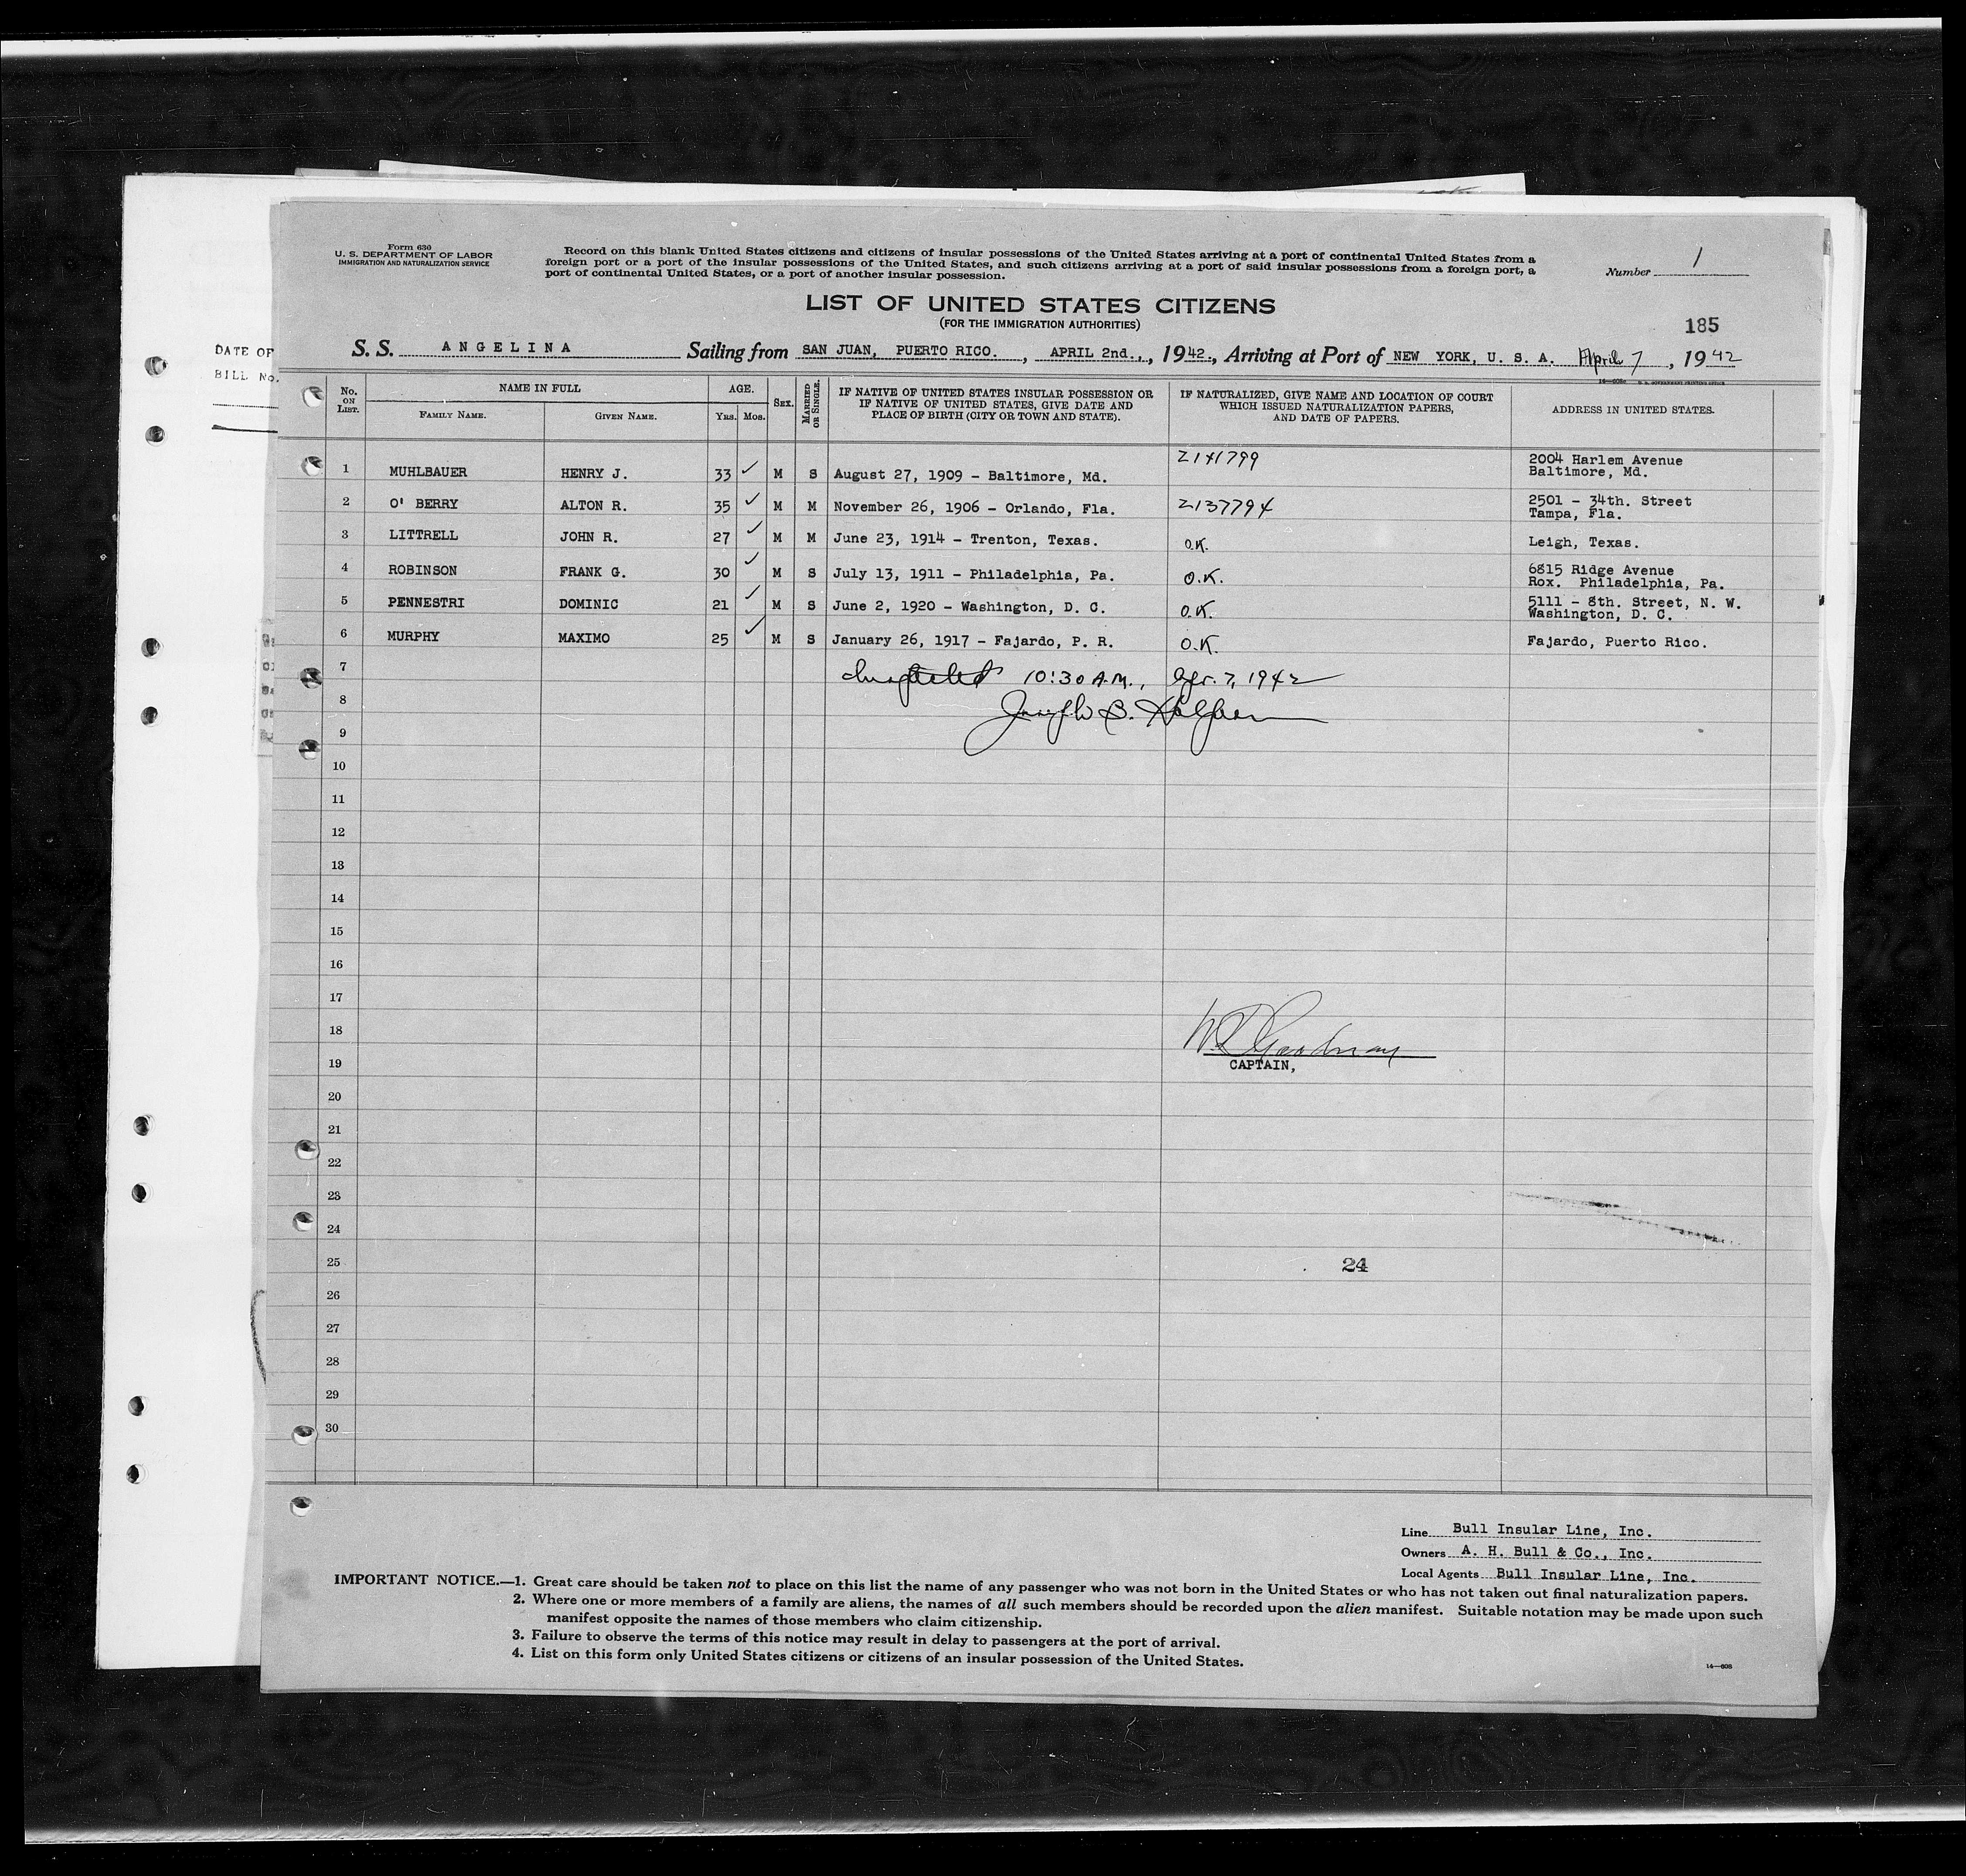 Form 630
U. S. DEPARTMENT OF LABOR
IMMIGRATION AND NATURALIZATION SERVICE
Record on this blank United States citizens and citizens of insular possessions of the United States arriving at a port of continental United States from a
foreign port or a port of the insular possessions of the United States, and such citizens arriving at a port of said insular possessions from a foreign port, a
port of continental United States, or a port of another insular possession.
Number 1
LIST OF UNITED STATES CITIZENS
(FOR THE IMMIGRATION AUTHORITIES)
185
DATE OF
BILL No.
S. S. ANGELINA Sailing from SAN JUAN, PUERTO RICO. , APRIL 2nd.., 1942., Arriving at Port of NEW YORK, U. S. A. April 7 , 1942
No. ON LIST. NAME IN FULL AGE. SEX. MARRIED OR SINGLE. IF NATIVE OF UNITED STATES INSULAR POSSESSION OR IF NATIVE OF UNITED STATES, GIVE DATE AND PLACE OF BIRTH (CITY OR TOWN AND STATE). IF NATURALIZED, GIVE NAME AND LOCATION OF COURT WHICH ISSUED NATURALIZATION PAPERS, AND DATE OF PAPERS. ADDRESS IN UNITED STATES.
FAMILY NAME. GIVEN NAME. YRS. MOS.
1 MUHLBAUER HENRY J. 33 ✓ M S August 27, 1909 - Baltimore, Md. Z141799 2004 Harlem Avenue
Baltimore, Md.
2 O' BERRY ALTON R. 35 ✓ M M November 26, 1906 - Orlando, Fla. Z137794 2501 - 34th. Street
Tampa, Fla.
3 LITTRELL JOHN R. 27 ✓ M M June 23, 1914 - Trenton, Texas. O.K. Leigh, Texas.
4 ROBINSON FRANK G. 30 ✓ M S July 13, 1911 - Philadelphia, Pa. O.K. 6815 Ridge Avenue
Rox. Philadelphia, Pa.
5 PENNESTRI DOMINIC 21 ✓ M S June 2, 1920 - Washington, D. C. O.K. 5111 - 8th. Street, N. W.
Washington, D. C.
6 MURPHY MAXIMO 25 ✓ M S January 26, 1917 - Fajardo, P. R. O.K. Fajardo, Puerto Rico.
7 Inspected 10:30 A.M., Apr. 7, 1942
8 Joseph B.
9
10
11
12
13
14
15
16
17
18 Goodman
19 CAPTAIN,
20
21
22
23
24
25 24
26
27
28
29
30
Line Bull Insular Line, Inc.
Owners A. H. Bull & Co., Inc.
Local Agents Bull Insular Line, Inc.
IMPORTANT NOTICE.—1. Great care should be taken not to place on this list the name of any passenger who was not born in the United States or who has not taken out final naturalization papers.
2. Where one or more members of a family are aliens, the names of all such members should be recorded upon the alien manifest. Suitable notation may be made upon such
manifest opposite the names of those members who claim citizenship.
3. Failure to observe the terms of this notice may result in delay to passengers at the port of arrival.
4. List on this form only United States citizens or citizens of an insular possession of the United States.
14—608